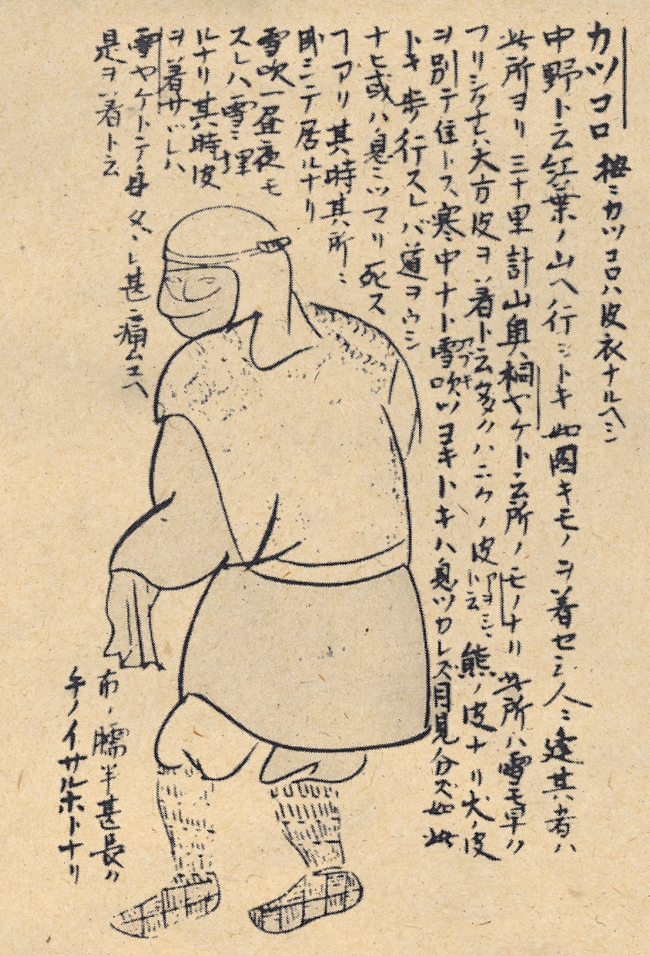 カツコロ 按ニカツコロハ皮衣ナルヘシ
中野ト云紅葉ノ山ヘ行シトキ如図キモノヲ着セシ人ニ逢其者ハ
此所ヨリ三十里計山奥桐ヤケト云所ノモノナリ此所ハ雪モ早ク
大方皮ヲ着ト云多クハニクノ皮アヲシシト云熊ノ皮ナリ犬ノ皮
ヲ別テ佳トス寒中ナト雪吹フブキツヨキトキハ息ツカレズ目見分ズ如此
トキ歩行スレバ道ヲウシ
ナヒ或ハ息ツマリ死ス
フアリ其時其所ニ
テ居ルナリ
雪吹一昼夜モ
スレハ雪ニ埋
ルナリ其時皮
ヲ着サレハ
雪ヤケトテ身 甚ニ痛ムユヘ
是ヲ着ト云
布ノ襦半甚長ク
手ノイサルホトナリ